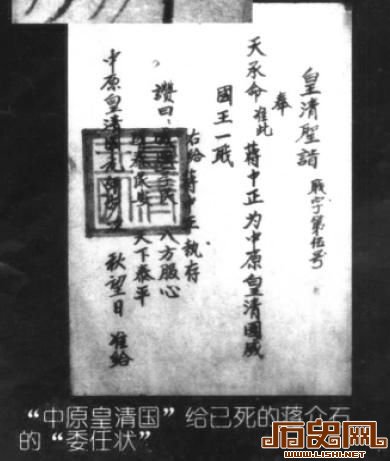 皇清聖諳 職字第伍号
奉
天承命准此 蔣中正为中原皇清國威
國王一职
右给蔣中正執存
讚曰: 八方服心
天下泰平
中原皇清國 秋望日 准给
“中原皇清国”给已死的蒋介石
的“委任状”
历史网
WWW.LISHI.NET